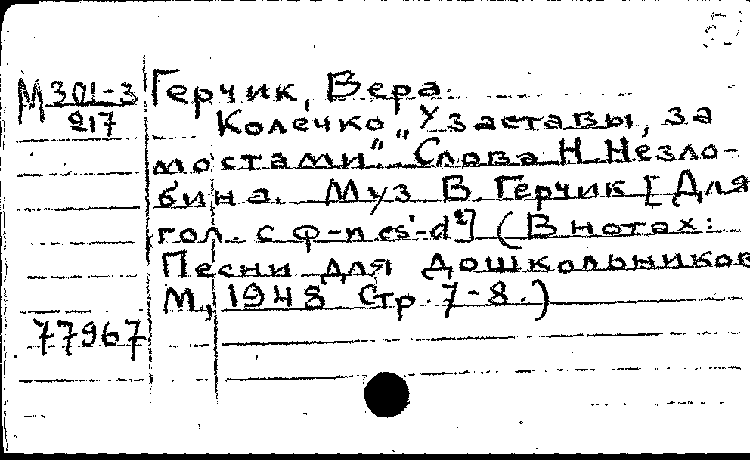 М 301-3 Герчик, Вера.
217 Колечко „У заставы, за
мостами". Слова Н. Незло-
бина. Муз В. Герчик [Для
гол. с ф-п es'-d²] (В нотах:
Песни для дошкольников
М., 1948 Стр. 7-8.)
77967